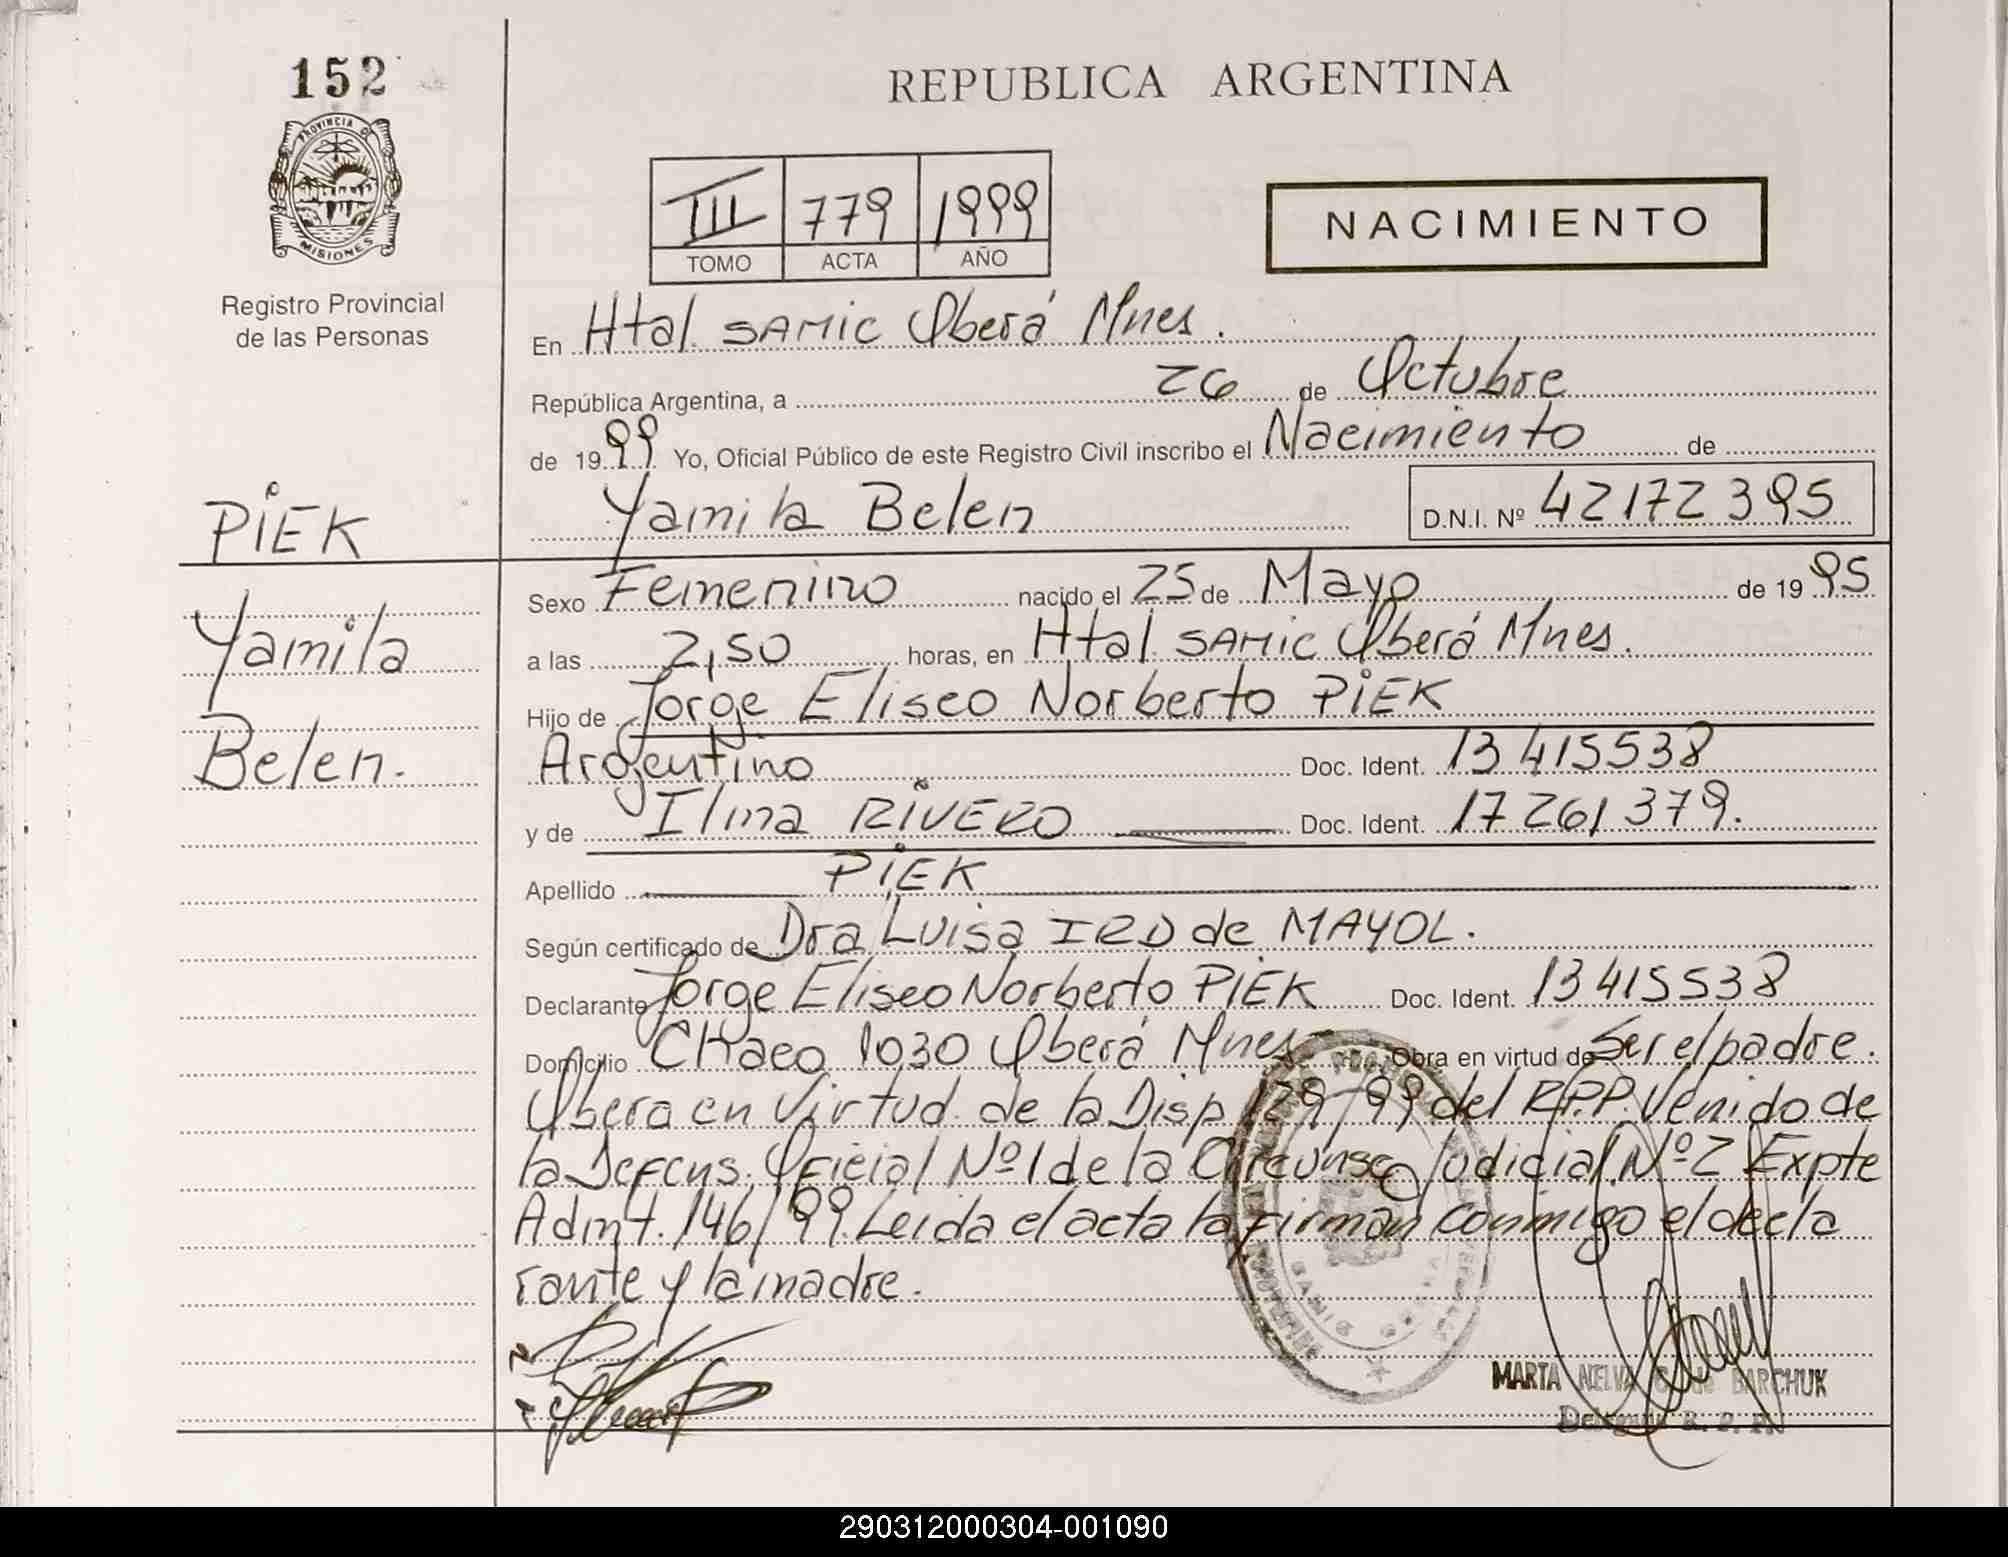 152
REPUBLICA ARGENTINA
PROVINCIA DE
MISIONES
III 779 1999
TOMO ACTA AÑO
NACIMIENTO
Registro Provincial
de las Personas
En Htal. SAMIC Oberá Mnes.
República Argentina, a 26 de Octubre
de 1999 Yo, Oficial Público de este Registro Civil inscribo el Nacimiento de
Yamila Belen D.N.I. Nº 42172395
PIEK
Yamila
Belen.
Sexo Femenino nacido el 25 de Mayo de 1995
a las 2,50 horas, en Htal. SAMIC Oberá Mnes.
Hijo de Jorge Eliseo Norberto PIEK
Argentino Doc. Ident. 13415538
y de Ilma RIVERO Doc. Ident. 17261379.
Apellido PIEK
Según certificado de Dra Luisa IRD de MAYOL.
Declarante Jorge Eliseo Norberto PIEK Doc. Ident. 13415538
Domicilio CHaco 1030 Oberá Mnes Obra en virtud de Ser el padre.
Obera en Virtud de la Disp 129/99 del R.P.P. Venido de
la Defens. Oficial Nº 1 de la Circunsc Judicial Nº 2 Expte
Admt. 146/99. Leida el acta la firman conmigo el decla
rante y la madre.
MARTA NELVA BARCHUK
290312000304-001090